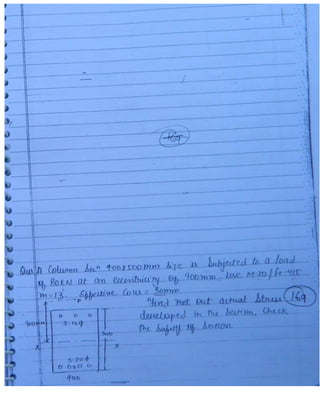 169
Que:) A Column Secⁿ 400x500mm size is Subjected to a load
of 80KN at an eccentricity of 900mm. Use M-20/fe-415
m=13. Effective Cover = 50mm
Find out actual Stress
developed in the Section. Check
the Safety of Section.
169
P
900mm
3-20φ
500
X X
5-20φ
400